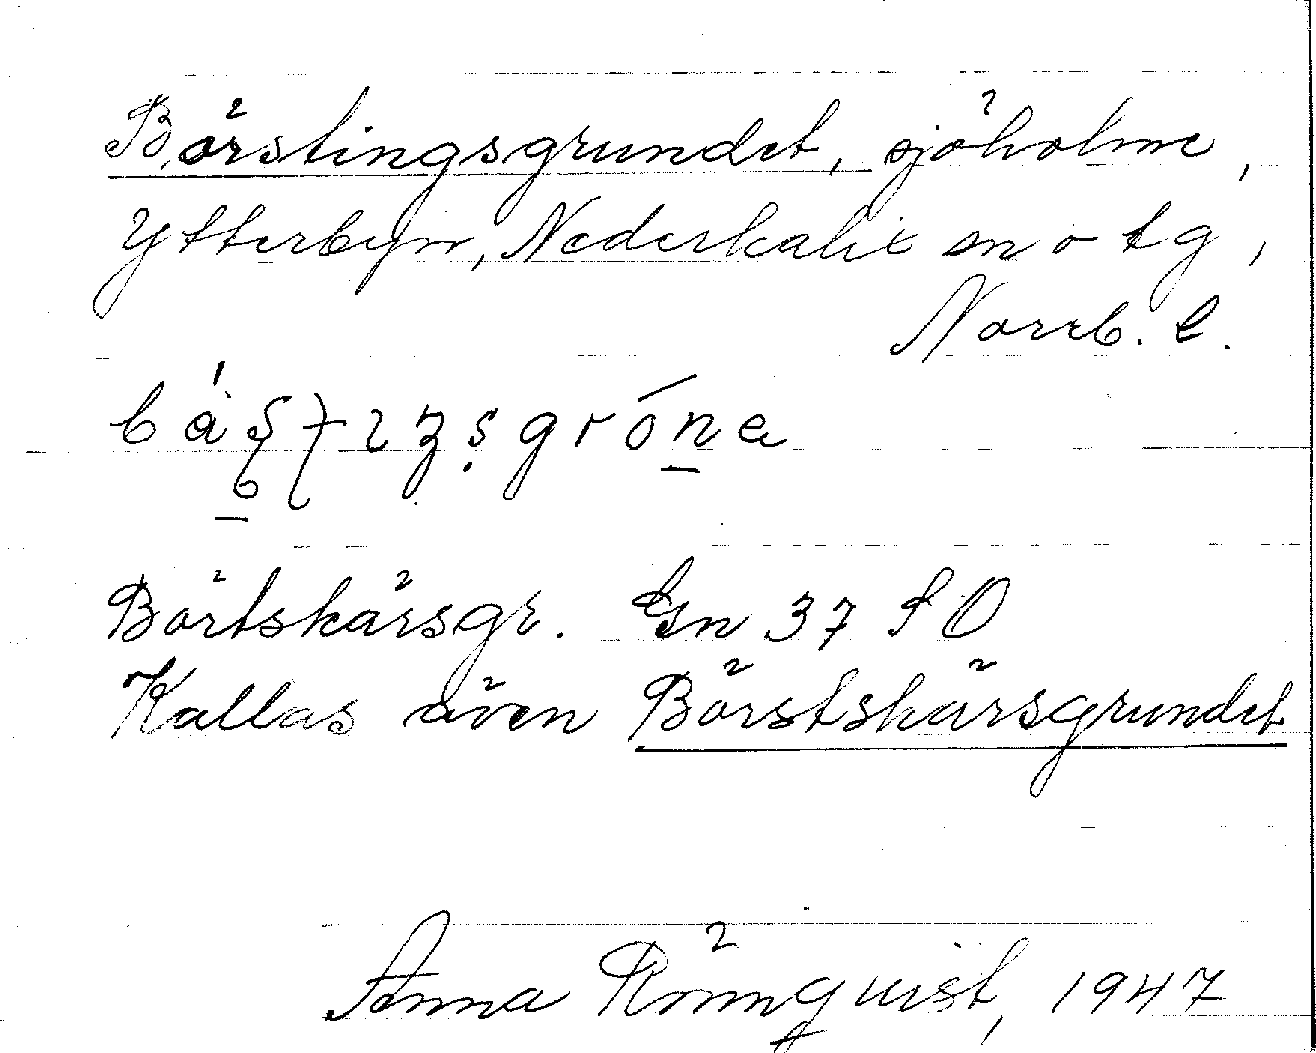 Börstingsgrundet, sjöholme,
Ytterbyn, Nederkalix sn o tg,
Norrb. l.
Börtskärsgr. Gn 37 SO
Kallas även Börstskärsgrundet
Anna Rönnquist, 1947